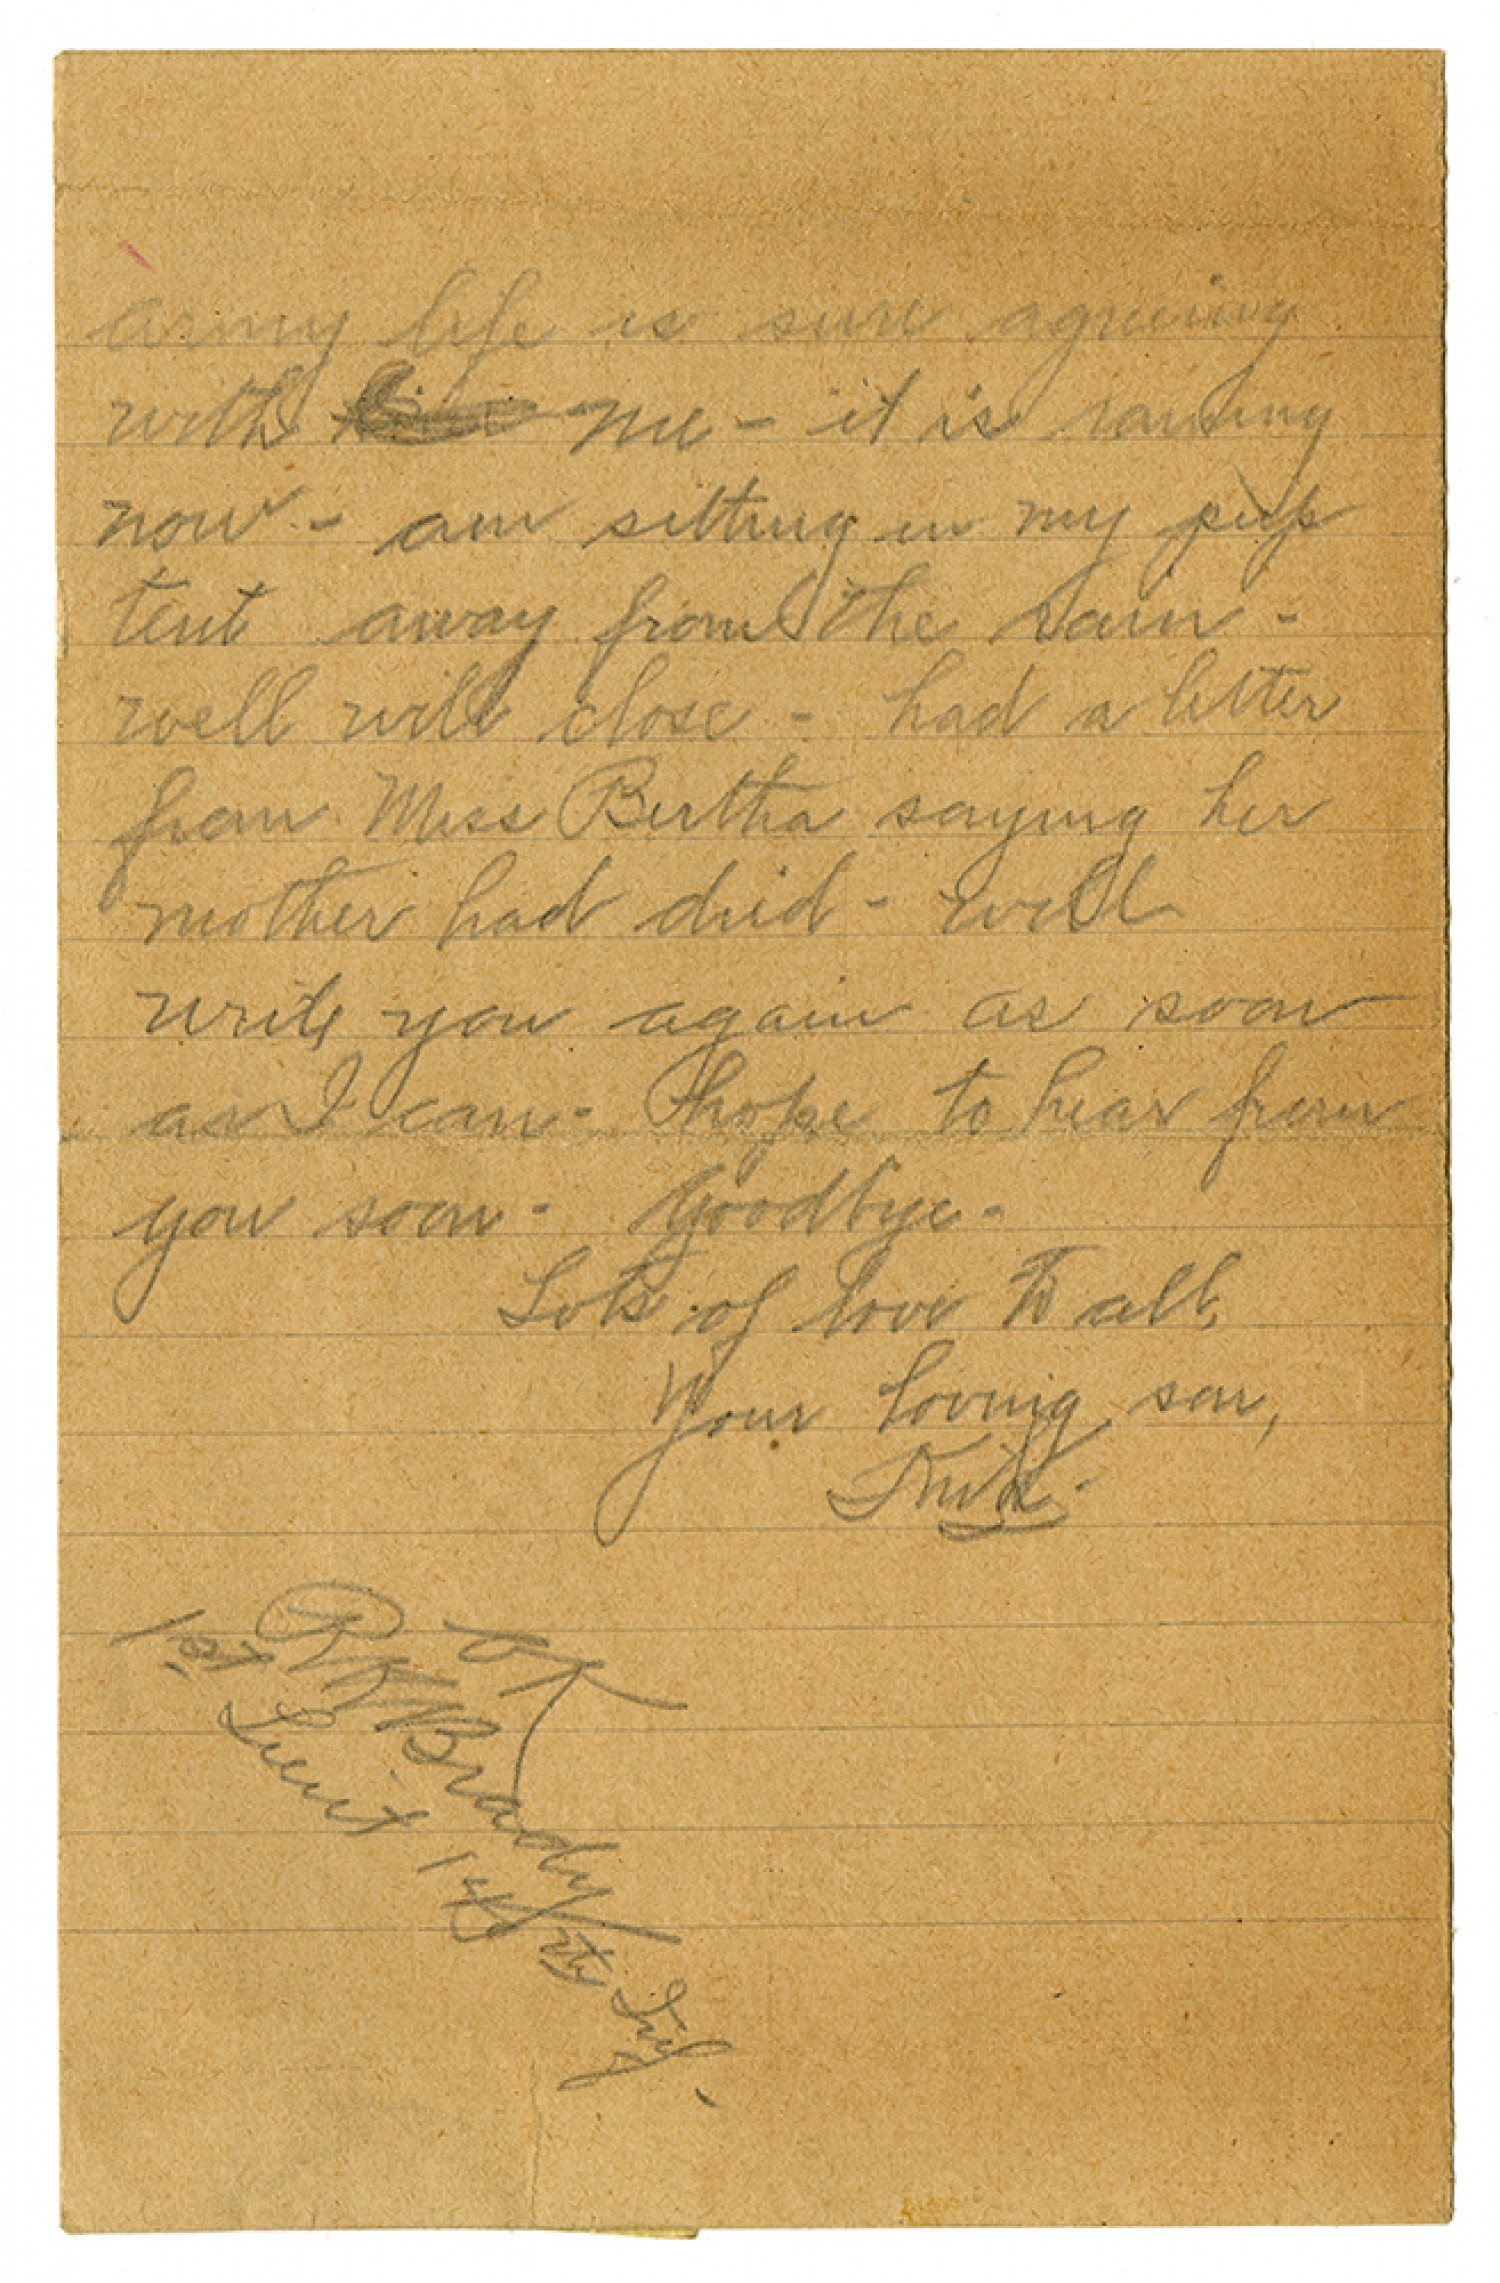 army life is sure agreeing
with me - it is raining
now - am sitting in my pup
tent away from the rain -
well will close - had a letter
from Miss Bertha saying her
mother had died - will
write you again as soon
as I can - hope to hear from
you soon - Goodbye -
Lots of love to all,
Your loving son,
OK
Brady
1st Lieut 140th Inf.